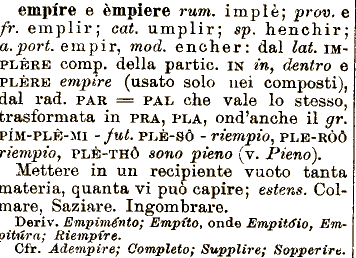 empíre e èmpiere rum. implè; prov. e
fr. emplir; cat. umplir; sp. henchir;
a. port. empir, mod. encher: dal lat. IM-
PLÈRE comp. della partic. IN in, dentro e
PLÈRE empire (usato solo nei composti),
dal rad. PAR = PAL che vale lo stesso,
trasformata in PRA, PLA, ond'anche il gr.
PÍM-PLÊ-MI - fut. PLÊ-SÔ - riempio, PLE-RÒÔ
riempio, PLÊ-THÔ sono pieno (v. Pieno).
Mettere in un recipiente vuoto tanta
materia, quanta vi può capire; estens. Col-
mare, Saziare. Ingombrare.
Deriv. Empiménto; Empíto, onde Empitóio, Em-
pitúra; Riempíre.
Cfr. Adempire; Completo; Supplire; Sopperire.